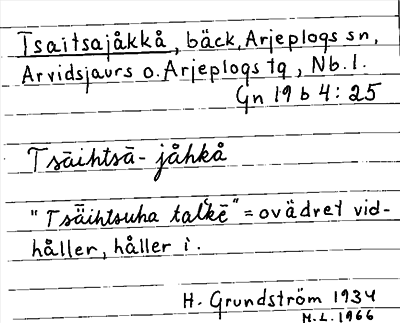 Tsaitsajåkkå, bäck, Arjeplogs sn,
Arvidsjaurs o. Arjeplogs tg, Nb. l.
Gn 19 b 4: 25
Tsäihtsā-jåhkå
"Tsäihtsuha talkē" = ovädret vid-
håller, håller i.
H. Grundström 1934
M.L. 1966